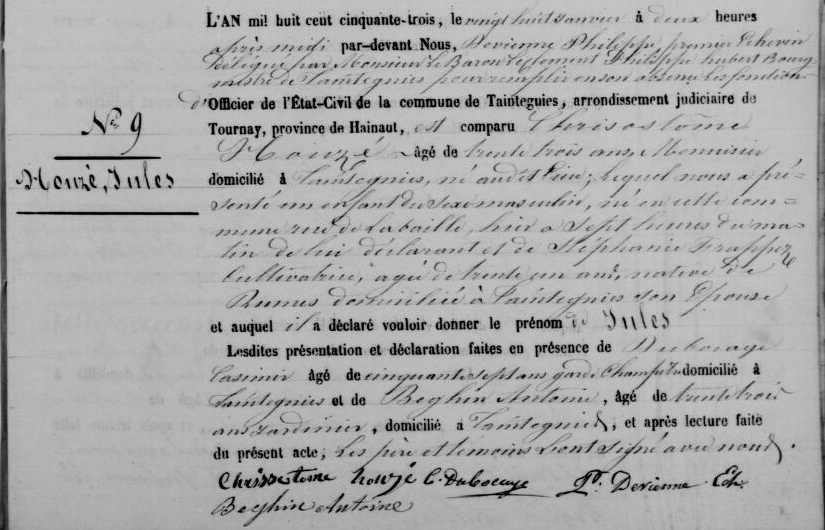 L'AN mil huit cent cinquante-trois, le vingt huit Janvier à deux heures
après midi par-devant Nous, Devienne Philippe, premier Echevin
Délégué par Monsieur le Baron Philippe hubert Bourg-
mestre de Taintegnies pour remplir en son absence les fonctions
d'Officier de l'État-Civil de la commune de Tainteguies, arrondissement judiciaire de
Tournay, province de Hainaut, est comparu Chrisostôme
N° 9
Houzé âgé de trente trois ans, Menuisier
Houzé, Jules
domicilié à Taintegnies, né audit lieu; lequel nous a pré-
senté un enfant du sexe masculin, né en cette com-
mune rue de hier a Sept heures du ma-
tin de lui déclarant et de Stéphanie Frappez
Cultivatrice, agée de trente un ans, native de
Rumes domiciliée à Taintegnies son Epouse
et auquel il a déclaré vouloir donner le prénom de Jules
Lesdites présentation et déclaration faites en présence de Dubocage
Casimir âgé de cinquante sept ans garde Champêtre domicilié à
Taintegnies et de Beghin Antoine, âgé de trente trois
ans Jardinier, domicilié à Taintegnies, et après lecture faite
du présent acte, Les père et témoins l'ont signé avec nous.
Chrisostome houzé C. Dubocage Ph. Devienne Ech.
Beghin Antoine